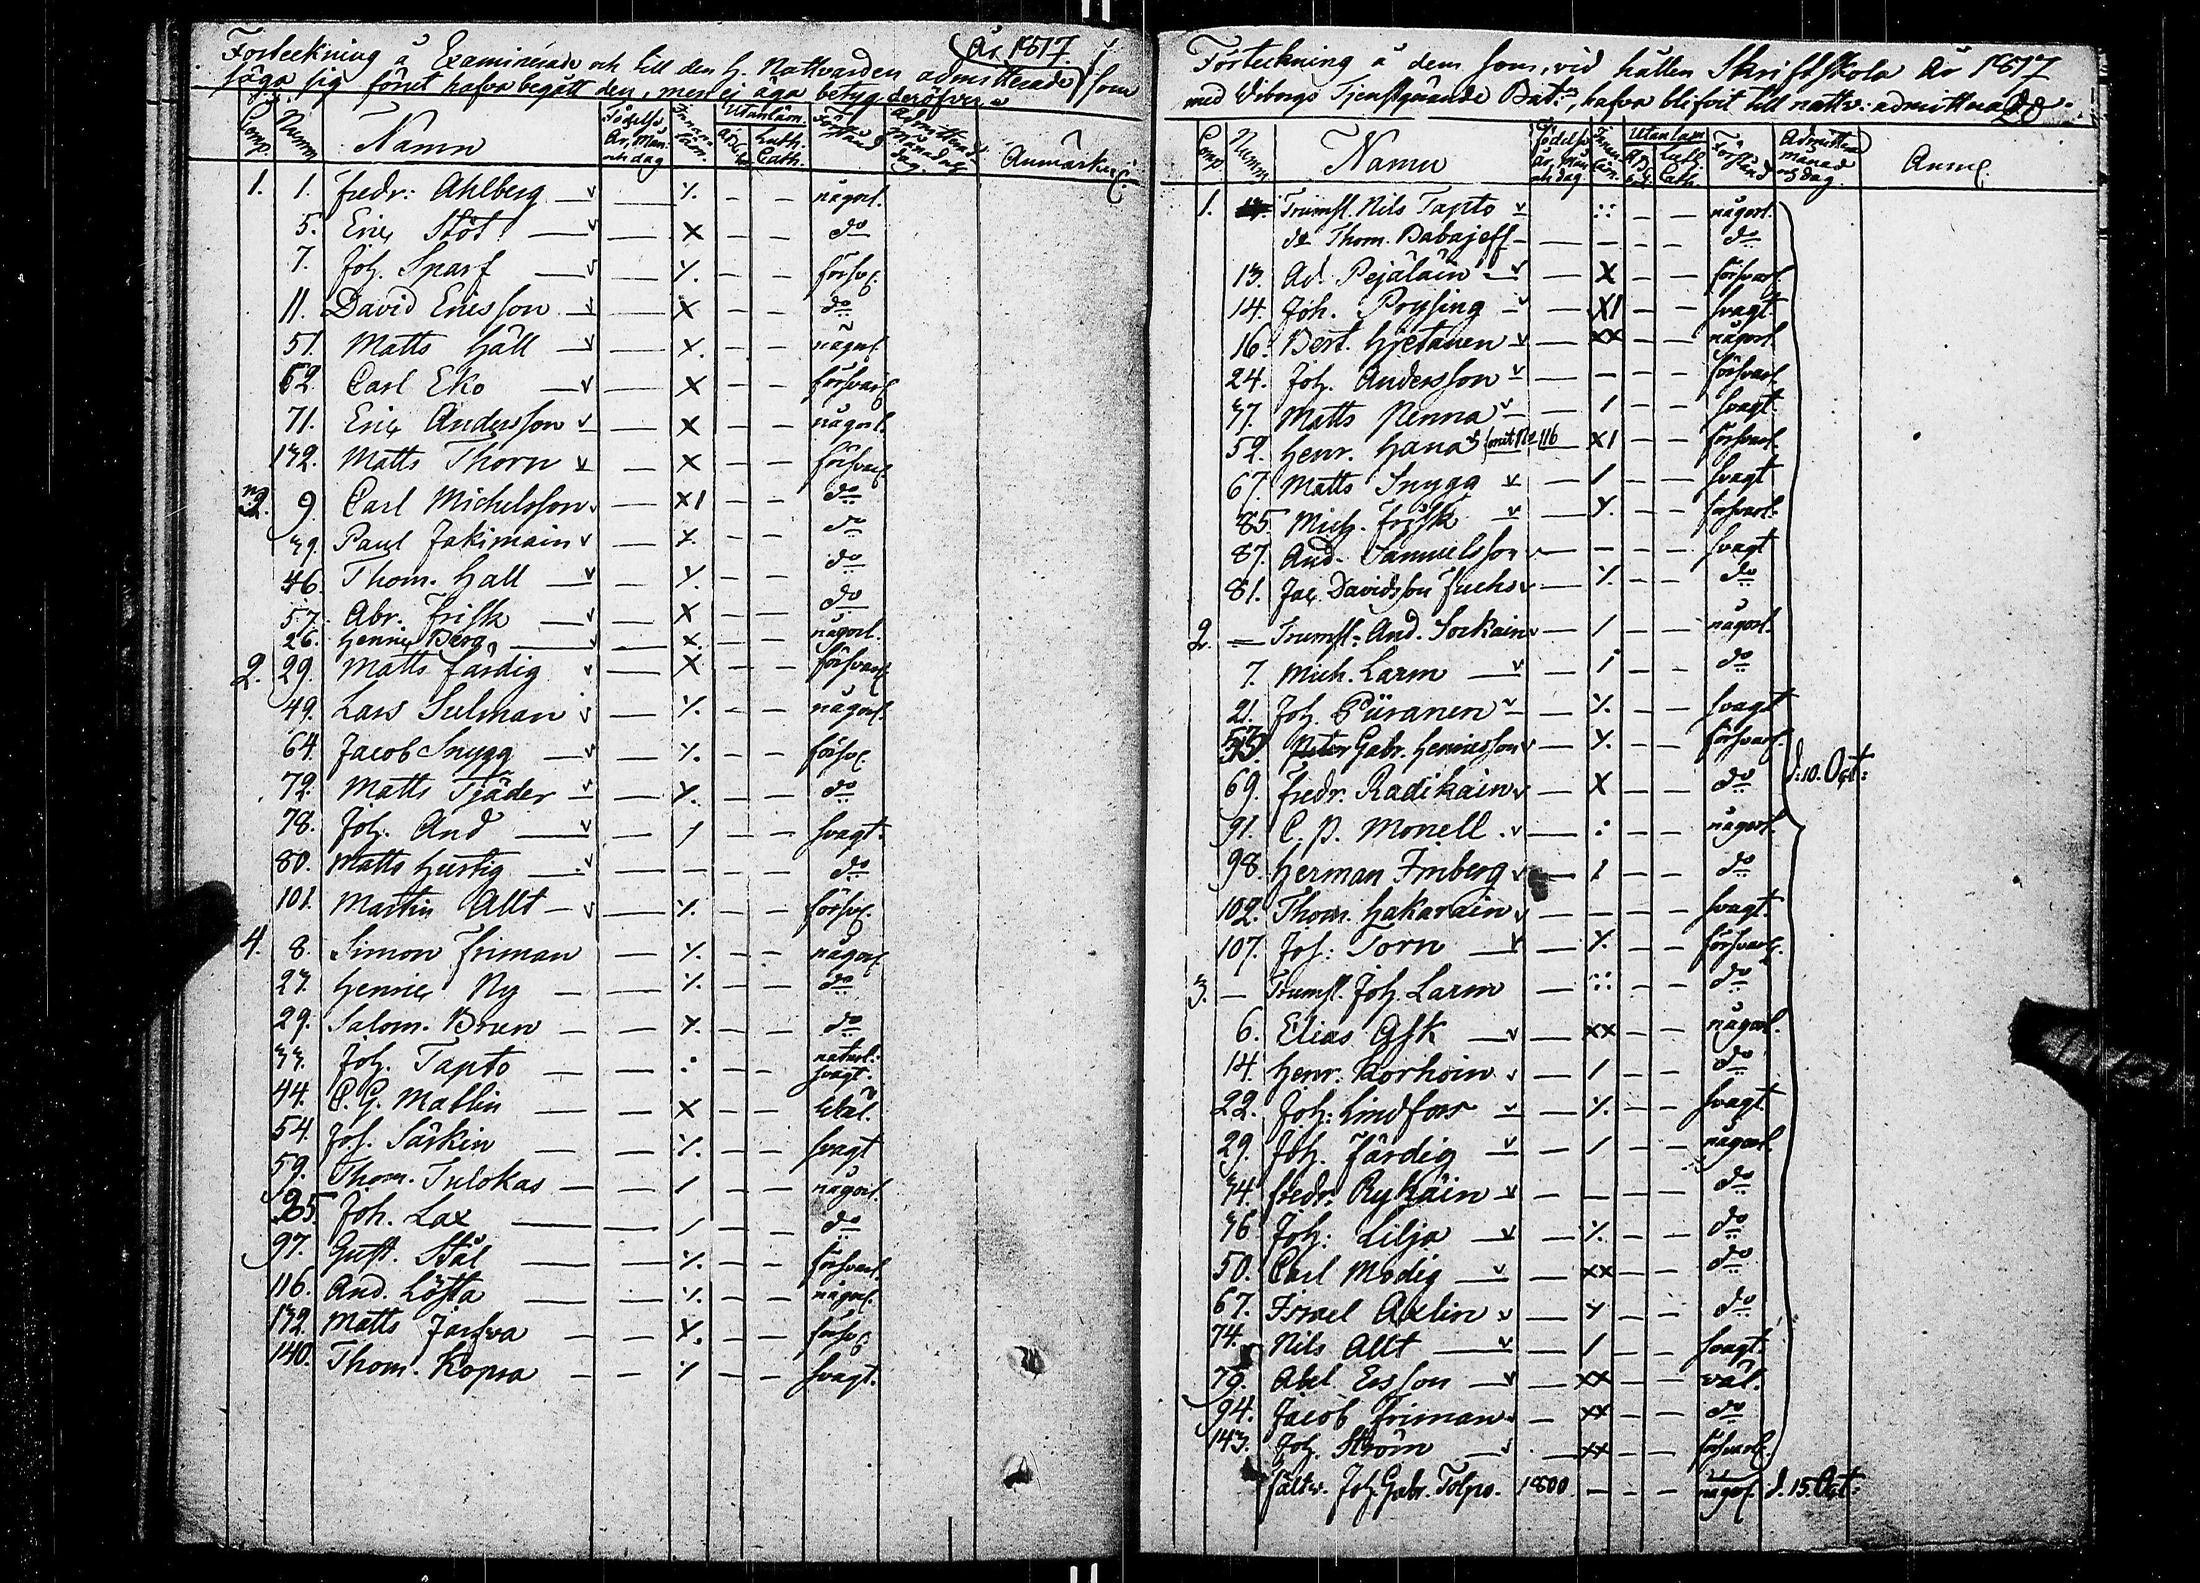 År 1817.
Förteckning å Examinerade och till den H. Nattvarden admitterade som
säga sig förut hafva begått den, men ej äga betyg deröfver
Comp. Numm Namn Födelse År, Mån. och dag Innanläsn. Utanläsn. A.B.C. bok Luth. Cath. Förstånd Admitterad Månad och dag. Anmärkn.
1. 1. Fredr: Ahlberg v — ⁒ - - någorl.
5. Eric Stöt v — X - - do
7. Joh. Snarf v — ⁒ - - försv.
11. David Ericsson v — X - - do
51. Matts Häll v — X. - - någorl
62. Carl Eko v — X - - försvarl
71. Eric Andersson v — X - - någorl.
132. Matts Thorn v — X - - försvarl
9. Carl Michelsson v — XI - - do
39. Paul Jakimain v — ⁒ - - do
46. Thom. Hall v — ⁒ - - do
57. Abr. Frisk v — X - - do
26. Henric Berg v — X. - - någorl.
2. 29. Matts Färdig v — X - - försvarl
49. Lars Sulman v — ⁒ - - någorl.
64. Jacob Snygg v — ⁒ - - försv.
72. Matts Tjäder v — ⁒ - - do
78. Joh. And v — / - - svagt.
80. Matts Hurtig v — - - - do
101. Martin Allt v — ⁒ - - försv.
4. 8. Simon Friman — ⁒ - - någorl
23. Henric Ny — — ⁒ - - do
29. Salom. Brun — — ⁒ - - do
33. Joh. Tapto — — . - - naturl. svagt.
44. C. G. Mallin — — X - - Wäl.
54. Joh. Särkin — — ⁒ - - svagt
59. Thom. Tulokas — — / - - någorl
95. Joh. Lax — — / - - do
97. Gust. Stål — — ⁒ - - försvarl.
116. And. Lösta — — ⁒ - - någorl.
132. Matts Jarfva — — ⁒ - - försv.
140. Thom. Kopra — — ⁒ - - svagt.
Förteckning å dem som, vid hållen Skriftskola År 1817
med Wiborgs Tjenstgörande Bat:n, hafva blifvit till nattv: admitterade.
Comp Numm Namn Födelse år, mån och dag Innanläsn. Utanläsn A.B.C. bok Luth. Cath. Förstånd Admitterad månad och dag. Anm.
1. Trumsl. Nils Tapto v :: - - någorl.
do Thom. Babajeff — — - - - do
13. Ad. Pejäläin v — X - - försvarl.
14. Joh. Prysing v — XI - - svagt.
16. Bert. Hjetanen v — XX - - någorl
24. Joh. Andersson v — - - - försvarl.
37. Matts Nenna v — / - - svagt.
52. Henr. Hana (mit No 116 — XI - - försvarl.
67. Matts Snygg v — / - - svagt
85. Mich. Frisk v — ⁒ - - försvarl.
87. And. Samuelsson v — - - - svagt
81. Jac. Davidsson Fuchs v — ⁒ - - do
2. — Trumsl. And. Sorkain v — / - - någorl.
7. Mich. Larm v — / - - do
21. Joh. Püranen v — ⁒ - - svagt
Gabr. Henricsson v — ⁒ - - försvarl.
d: 10. Oct:
69. Fredr. Radikain v — X - - do
91. C. P. Monell v — : - - någorl.
98. Herman Imberg v — / - - do
102. Thom. Hakarain v — - - - svagt.
107. Joh: Torn v — ⁒ - - försvarl.
3. — Trumsl. Joh. Larm — :: - - do
6. Elias Ask v — XX - - någorl.
14. Henr. Korhoin v — / - - do
22. Joh: Lindfors v — ⁒ - - svagt
29. Joh. Färdig v — / - - någorl.
34. Fredr. Rykäin v — - - - do
36. Joh: Lilja v — ⁒ - - do
50. Carl Modig v — XX - - do
67. Israel Axlin v — ⁒ - - do
74. Nils Allt v — / - - svagt.
79. Abel Ersson v — XX - - väl.
94. Jacob Friman v — XX - - do
143. Joh. Ström v — XX - - försvarl.
Fältv. Joh. Gabr. Tolpo. 1800 — - - någorl. d. 15. Oct: